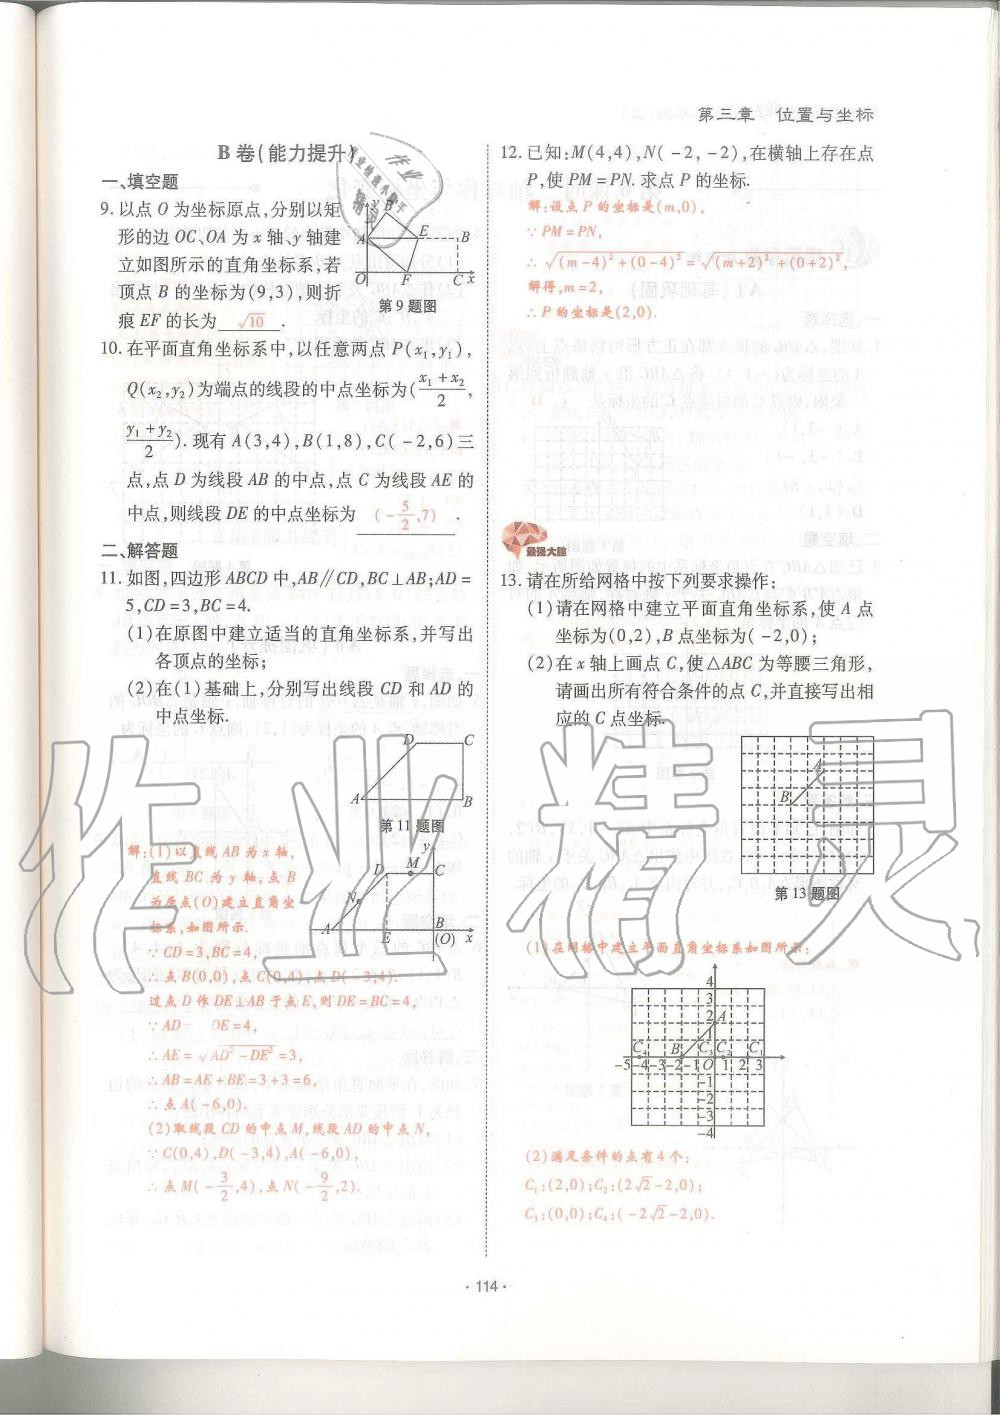 第三章 位置与坐标
B 卷(能力提升)
一、填空题
9. 以点 O 为坐标原点,分别以矩
形的边 OC、OA 为 x 轴、y 轴建
立如图所示的直角坐标系,若
顶点 B 的坐标为(9,3),则折
痕 EF 的长为 √10 .
y
B'
A
E
B
O
F
C
x
第 9 题图
10. 在平面直角坐标系中,以任意两点 P(x₁,y₁),
Q(x₂,y₂)为端点的线段的中点坐标为((x₁+x₂)/2,
(y₁+y₂)/2). 现有 A(3,4),B(1,8),C(-2,6)三
点,点 D 为线段 AB 的中点,点 C 为线段 AE 的
中点,则线段 DE 的中点坐标为 (-5/2,7) .
二、解答题
11. 如图,四边形 ABCD 中,AB∥CD,BC⊥AB;AD=
5,CD=3,BC=4.
(1)在原图中建立适当的直角坐标系,并写出
各顶点的坐标;
(2)在(1)基础上,分别写出线段 CD 和 AD 的
中点坐标.
D
C
A
B
第 11 题图
解:(1)以直线 AB 为 x 轴,
直线 BC 为 y 轴,点 B
为原点(O)建立直角坐
标系,如图所示.
y
D M C
N
A
E
B
(O)
x
∵CD=3,BC=4,
∴点 B(0,0),点 C(0,4),点 D(-3,4).
过点 D 作 DE⊥AB 于点 E,则 DE=BC=4,
∵AD= DE=4,
∴AE=√(AD²-DE²)=3,
∴AB=AE+BE=3+3=6,
∴点 A(-6,0).
(2)取线段 CD 的中点 M,线段 AD 的中点 N,
∵C(0,4),D(-3,4),A(-6,0),
∴点 M(-3/2,4),点 N(-9/2,2).
12. 已知:M(4,4),N(-2,-2),在横轴上存在点
P,使 PM=PN. 求点 P 的坐标.
解:设点 P 的坐标是(m,0),
∵PM=PN,
∴√((m-4)²+(0-4)²)=√((m+2)²+(0+2)²),
解得,m=2,
∴P 的坐标是(2,0).
最强大脑
13. 请在所给网格中按下列要求操作:
(1)请在网格中建立平面直角坐标系,使 A 点
坐标为(0,2),B 点坐标为(-2,0);
(2)在 x 轴上画点 C,使△ABC 为等腰三角形,
请画出所有符合条件的点 C,并直接写出相
应的 C 点坐标.
A
B
第 13 题图
(1)在网格中建立平面直角坐标系如图所示:
4
3
2
A
1
C₄ B C₃ C₂ C₁
-5 -4 -3 -2 -1 O 1 2 3
-1
-2
-3
-4
(2)满足条件的点有 4 个:
C₁:(2,0);C₂:(2√2-2,0);
C₃:(0,0);C₄:(-2√2-2,0).
作业精灵
· 114 ·